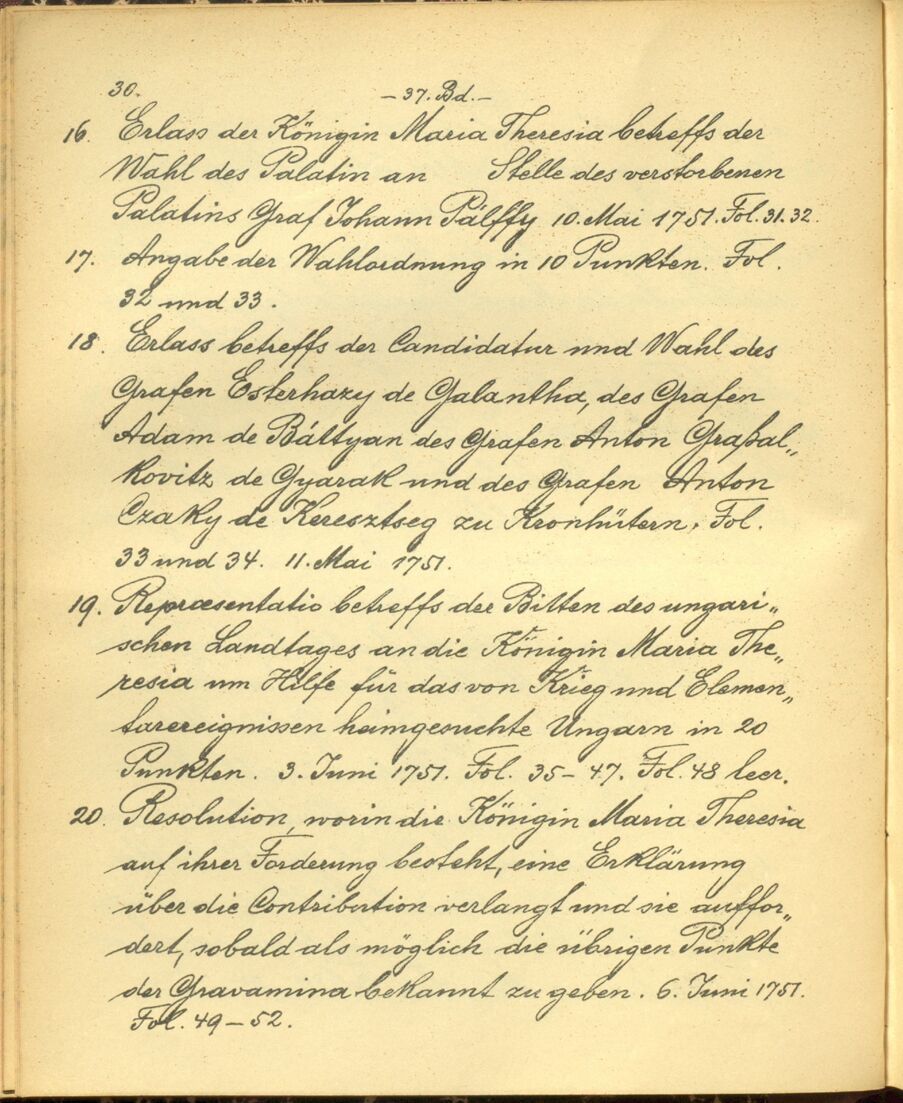 30.
- 37. Bd. -
16. Erlass der Königin Maria Theresia betreffs der
Wahl des Palatin an Stelle des verstorbenen
Palatins Graf Johann Pálffy 10. Mai 1751. Fol. 31. 32.
17. Angabe der Wahlordnung in 10 Punkten. Fol.
32 und 33.
18. Erlass betreffs der Candidatur und Wahl des
Grafen Esterhazy de Galantha, des Grafen
Adam de Báttyan des Grafen Anton Graßal„
kovitz de Gyarak und des Grafen Anton
Czaky de Keresztseg zu Kronhütern. Fol.
33 und 34. 11. Mai 1751.
19. Repraesentatio betreffs der Bitten des ungari„
schen Landtages an die Königin Maria The„
resia um Hilfe für das von Krieg und Elemen„
tarereignissen heimgesuchte Ungarn in 20
Punkten. 3. Juni 1751. Fol. 35 - 47. Fol. 48 leer.
20. Resolution, worin die Königin Maria Theresia
auf ihrer Forderung besteht, eine Erklärung
über die Contribution verlangt und sie auffor„
dert, sobald als möglich die übrigen Punkte
der Gravamina bekannt zu geben. 6. Juni 1751.
Fol. 49 - 52.